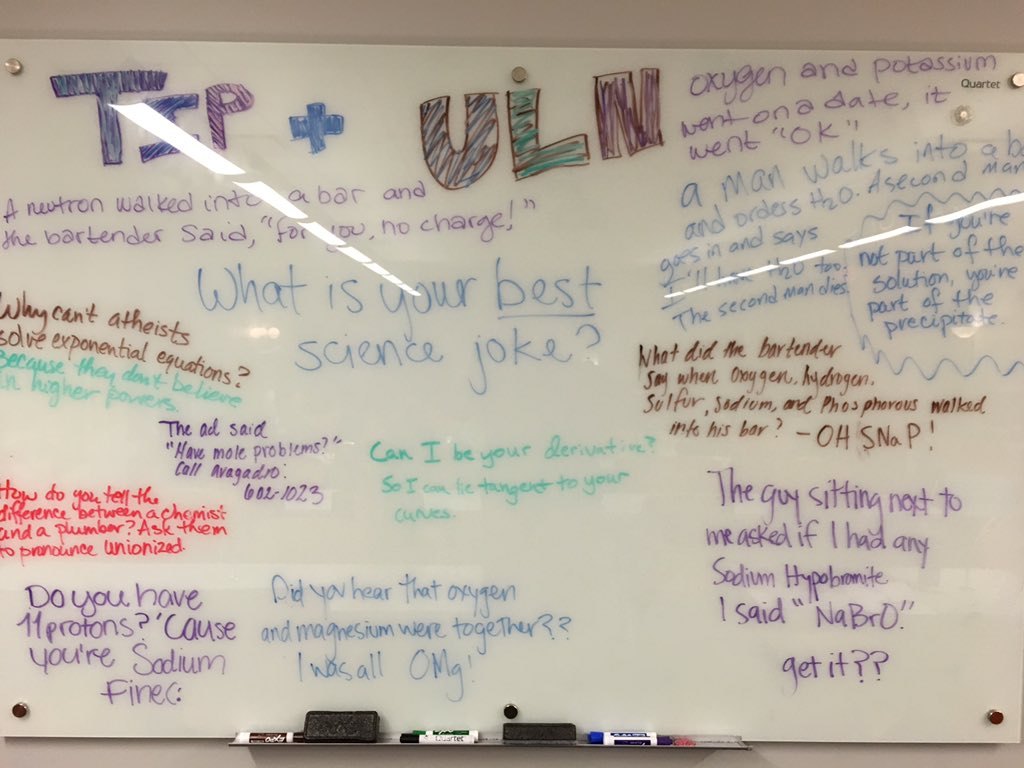 TIP + ULN
oxygen and potassium
went on a date, it
went "OK"
Quartet
A neutron walked into a bar and
the bartender said, "for you, no charge!"
a man walks into a ba
and orders H2O. A second man
goes in and says
I'll have H2O too.
The second man dies.
If you're
not part of the
solution, you're
part of the
precipitate.
What is your best
science joke?
Why can't atheists
solve exponential equations?
Because they don't believe
in higher powers.
What did the bartender
say when oxygen, hydrogen,
Sulfur, Sodium, and Phosphorous walked
into his bar? - OH SNaP!
The ad said
"Have mole problems?"
Call Avagadro:
602-1023
Can I be your derivative?
So I can lie tangent to your
curves.
How do you tell the
difference between a chemist
and a plumber? Ask them
to pronounce unionized.
The guy sitting next to
me asked if I had any
Sodium Hypobromite
I said "NaBrO."
get it??
Do you have
11 protons? 'Cause
you're Sodium
Fine(:
Did you hear that oxygen
and magnesium were together??
I was all OMg!
Quartet